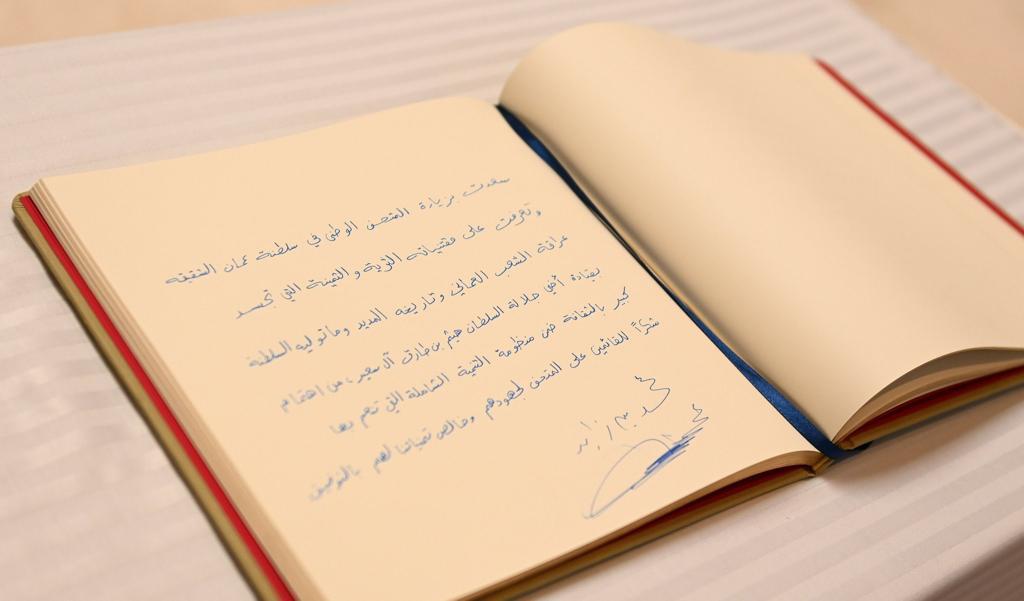 سعدت بزيارة المتحف الوطني في سلطنة عمان الشقيقة
وتعرفت على مقتنياته الثرية والثمينة التي تجسد
عراقة الشعب العماني وتاريخه المديد وما توليه السلطنة
بقيادة أخي جلالة السلطان هيثم بن طارق آل سعيد، من اهتمام
كبير بالثقافة ضمن منظومة التنمية الشاملة التي تنعم بها
شكراً للقائمين على المتحف لجهودهم وخالص تمنياتنا لهم بالتوفيق
محمد بن زايد